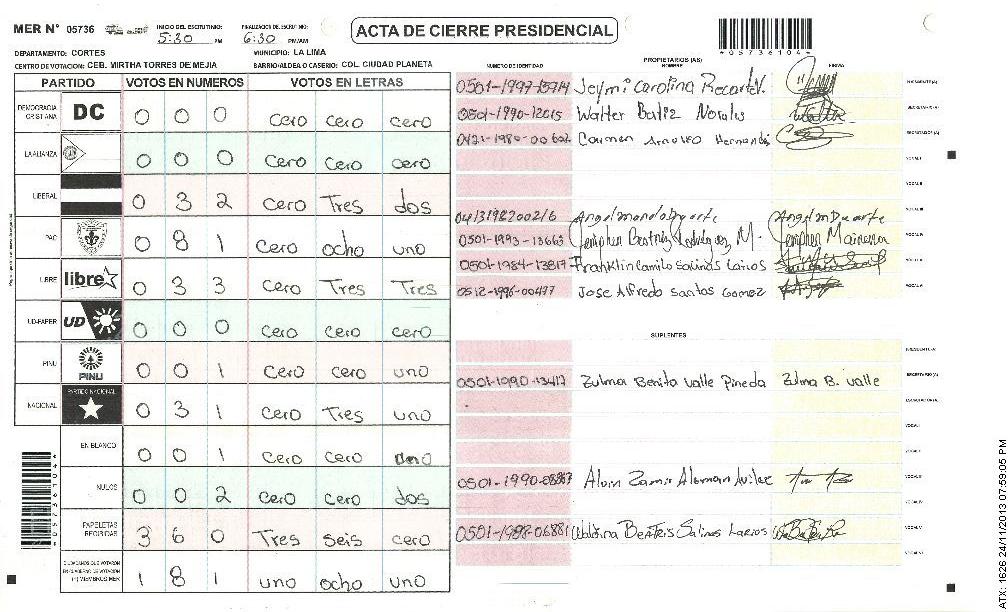 MER N° 05736
INICIO DEL ESCRUTINIO: 5:30 PM
FINALIZACION DEL ESCRUTINIO: 6:30 PM/AM
ACTA DE CIERRE PRESIDENCIAL
*05736104*
DEPARTAMENTO: CORTES
MUNICIPIO: LA LIMA
CENTRO DE VOTACION: CEB. MIRTHA TORRES DE MEJIA
BARRIO/ALDEA O CASERIO: COL. CIUDAD PLANETA
PARTIDO VOTOS EN NUMEROS VOTOS EN LETRAS
DEMOCRACIA CRISTIANA DC 0 0 0 cero cero cero
LA ALIANZA 0 0 0 cero cero cero
LIBERAL 0 3 2 cero Tres dos
PAC 0 8 1 cero ocho uno
LIBRE libre 0 3 3 cero Tres Tres
UD-FAPER UD 0 0 0 cero cero cero
PINU PINU 0 0 1 cero cero uno
NACIONAL PARTIDO NACIONAL 0 3 1 cero Tres uno
EN BLANCO 0 0 1 cero cero uno
NULOS 0 0 2 cero cero dos
PAPELETAS RECIBIDAS 3 6 0 Tres seis cero
CIUDADANOS QUE VOTARON EN CUADERNO DE VOTACION (+) MIEMBROS MER 1 8 1 uno ocho uno
*05736104*
NUMERO DE IDENTIDAD PROPIETARIOS (AS) NOMBRE FIRMA
Jeymi Carolina PRESIDENTE(A)
0501-1990-12015 Walter SECRETARIO(A)
Carmen ESCRUTADOR(A)
VOCAL I
VOCAL II
VOCAL III
0501-1993-13663 M. VOCAL IV
0501-1984-13817 Franklin Camilo Salinas VOCAL V
0512-1996-00477 Jose Alfredo Santos Gomez VOCAL VI
SUPLENTES
PRESIDENTE(A)
0501-1990-13417 Zulma Benita Valle Pineda Zulma B. Valle SECRETARIO(A)
ESCRUTADOR(A)
VOCAL I
VOCAL II
Alvin VOCAL III
VOCAL IV
0501-1988-06881 Salinas Larios VOCAL V
VOCAL VI
ATX: 1626 24/11/2013 07:59:05 PM